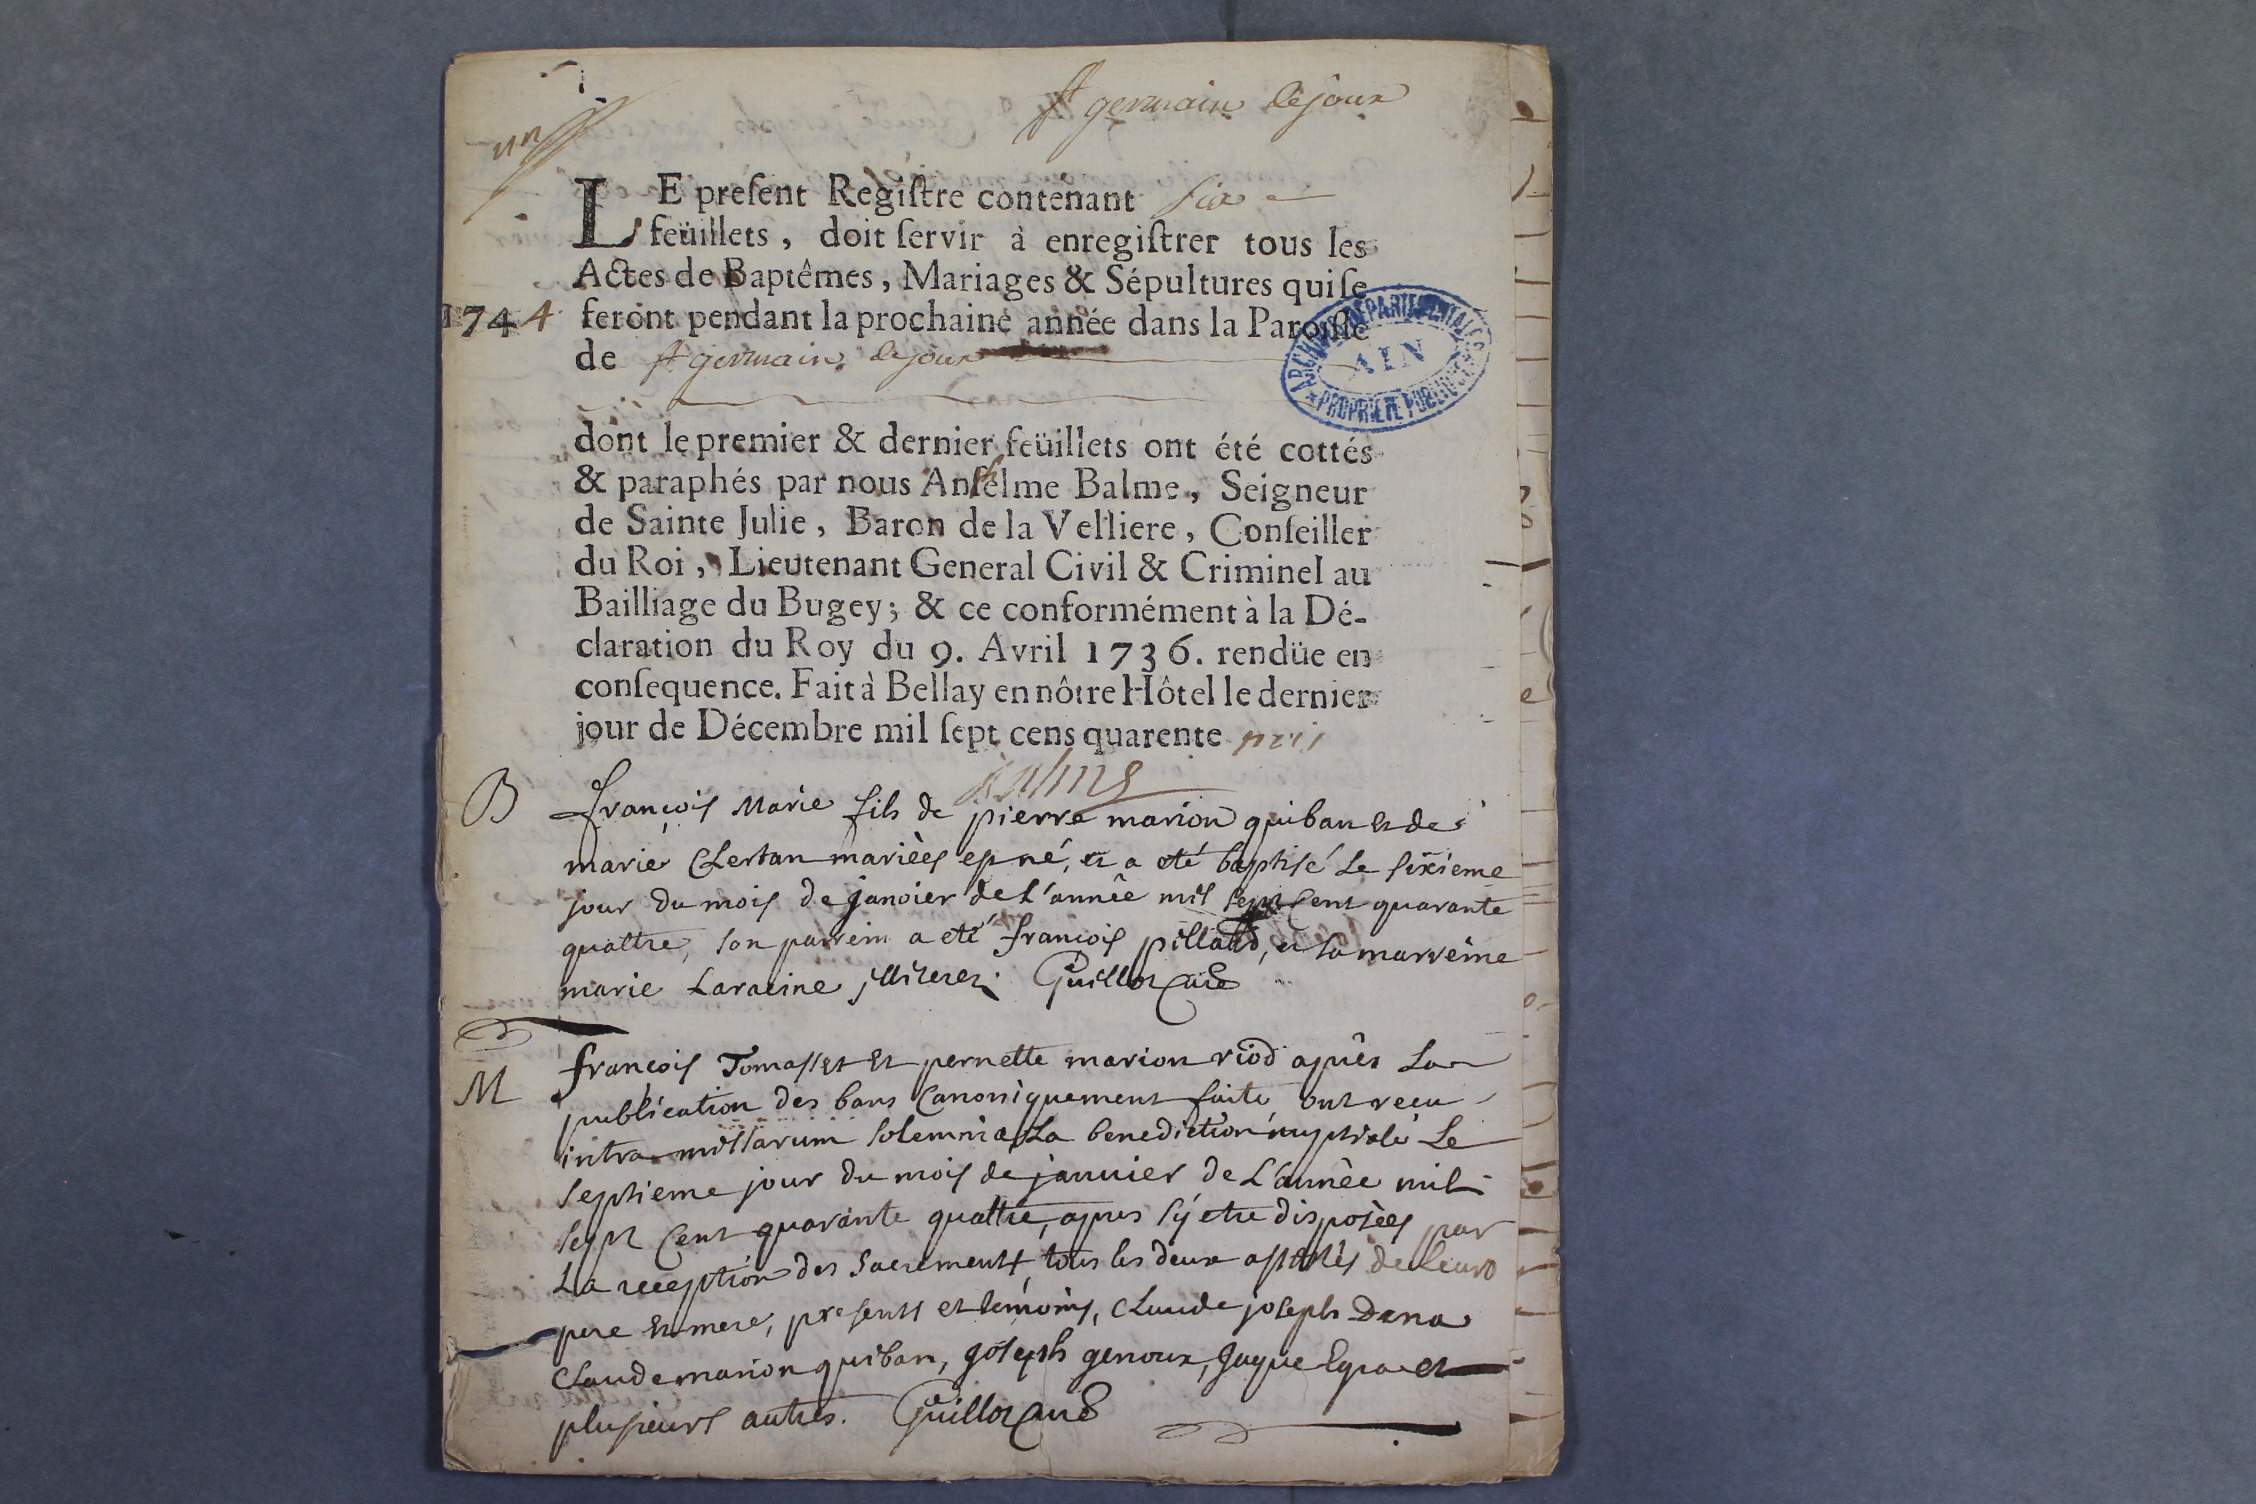 un
st germain dejoux
LE preſent Regiſtre contenant six
feüillets, doit ſervir à enregiſtrer tous les
Actes de Baptêmes, Mariages & Sépultures qui ſe
1744 feront pendant la prochaine année dans la Paroiſſe
de st germain dejoux
ARCHIVES DÉPARTEMENTALES
AIN
PROPRIÉTÉ PUBLIQUE
dont le premier & dernier feüillets ont été cottés
& paraphés par nous Anthelme Balme, Seigneur
de Sainte Julie, Baron de la Velliere, Conſeiller
du Roi, Lieutenant General Civil & Criminel au
Bailliage du Bugey; & ce conformément à la Dé-
claration du Roy du 9. Avril 1736. rendüe en
conſequence. Fait à Bellay en nôtre Hôtel le dernier
jour de Décembre mil ſept cens quarente trois
Balme
B françois Marie fils de pierre marion quiban et de
marie mariées est né, et a eté baptisé le sixieme
jour du mois de janvier de l'année mil sept cent quarante
quattre, son parrein a eté françois pilland, et sa marreine
marie Laracine illiterez. Guillot curé
M françois Tomasset et pernette marion riod après La
publication des bans canoniquement faite ont recu
intra missarum solemnia La benediction nuptiale Le
septieme jour du mois de janvier de L'année mil
sept cent quarante quattre, apres s'y etre disposées par
La reception des sacrements, tous les deux de leurs
pere et mere, presents et témoins, claude joseph Dana
claude marion quiban, joseph genoux, jaque Egra et
plusieurs autres. Guillot curé